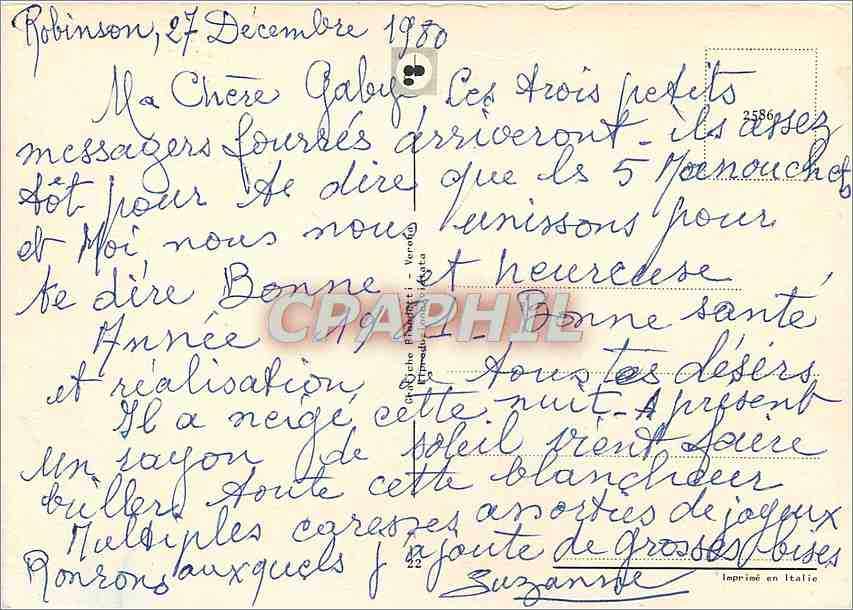 Robinson, 27 Décembre 1980
Ma Chère Gaby Les trois petits
2586
messagers fourrés arriveront - ils assez
tôt pour te dire que les 5 Manouchets
et Moi, nous nous unissons pour
te dire Bonne et heureuse
Année 1981. - Bonne santé
et réalisation de tous tes désirs
Il a neigé cette nuit - A présent
un rayon de soleil vient faire
briller toute cette blancheur
Multiples caresses assorties de joyeux
Ronrons auxquels j'ajoute de grosses bises
Suzanne
22
Imprimé en Italie
CPAPHIL